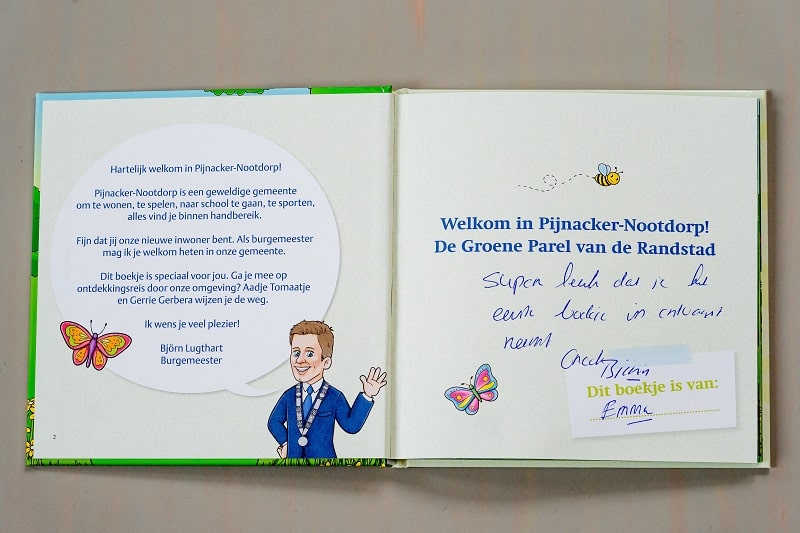 Hartelijk welkom in Pijnacker-Nootdorp!
Pijnacker-Nootdorp is een geweldige gemeente
om te wonen, te spelen, naar school te gaan, te sporten,
alles vind je binnen handbereik.
Fijn dat jij onze nieuwe inwoner bent. Als burgemeester
mag ik je welkom heten in onze gemeente.
Dit boekje is speciaal voor jou. Ga je mee op
ontdekkingsreis door onze omgeving? Aadje Tomaatje
en Gerrie Gerbera wijzen je de weg.
Ik wens je veel plezier!
Björn Lugthart
Burgemeester
2
Welkom in Pijnacker-Nootdorp!
De Groene Parel van de Randstad
Super leuk dat je het
eerste boekje in ontvangst
neemt
Björn
Dit boekje is van:
Emma